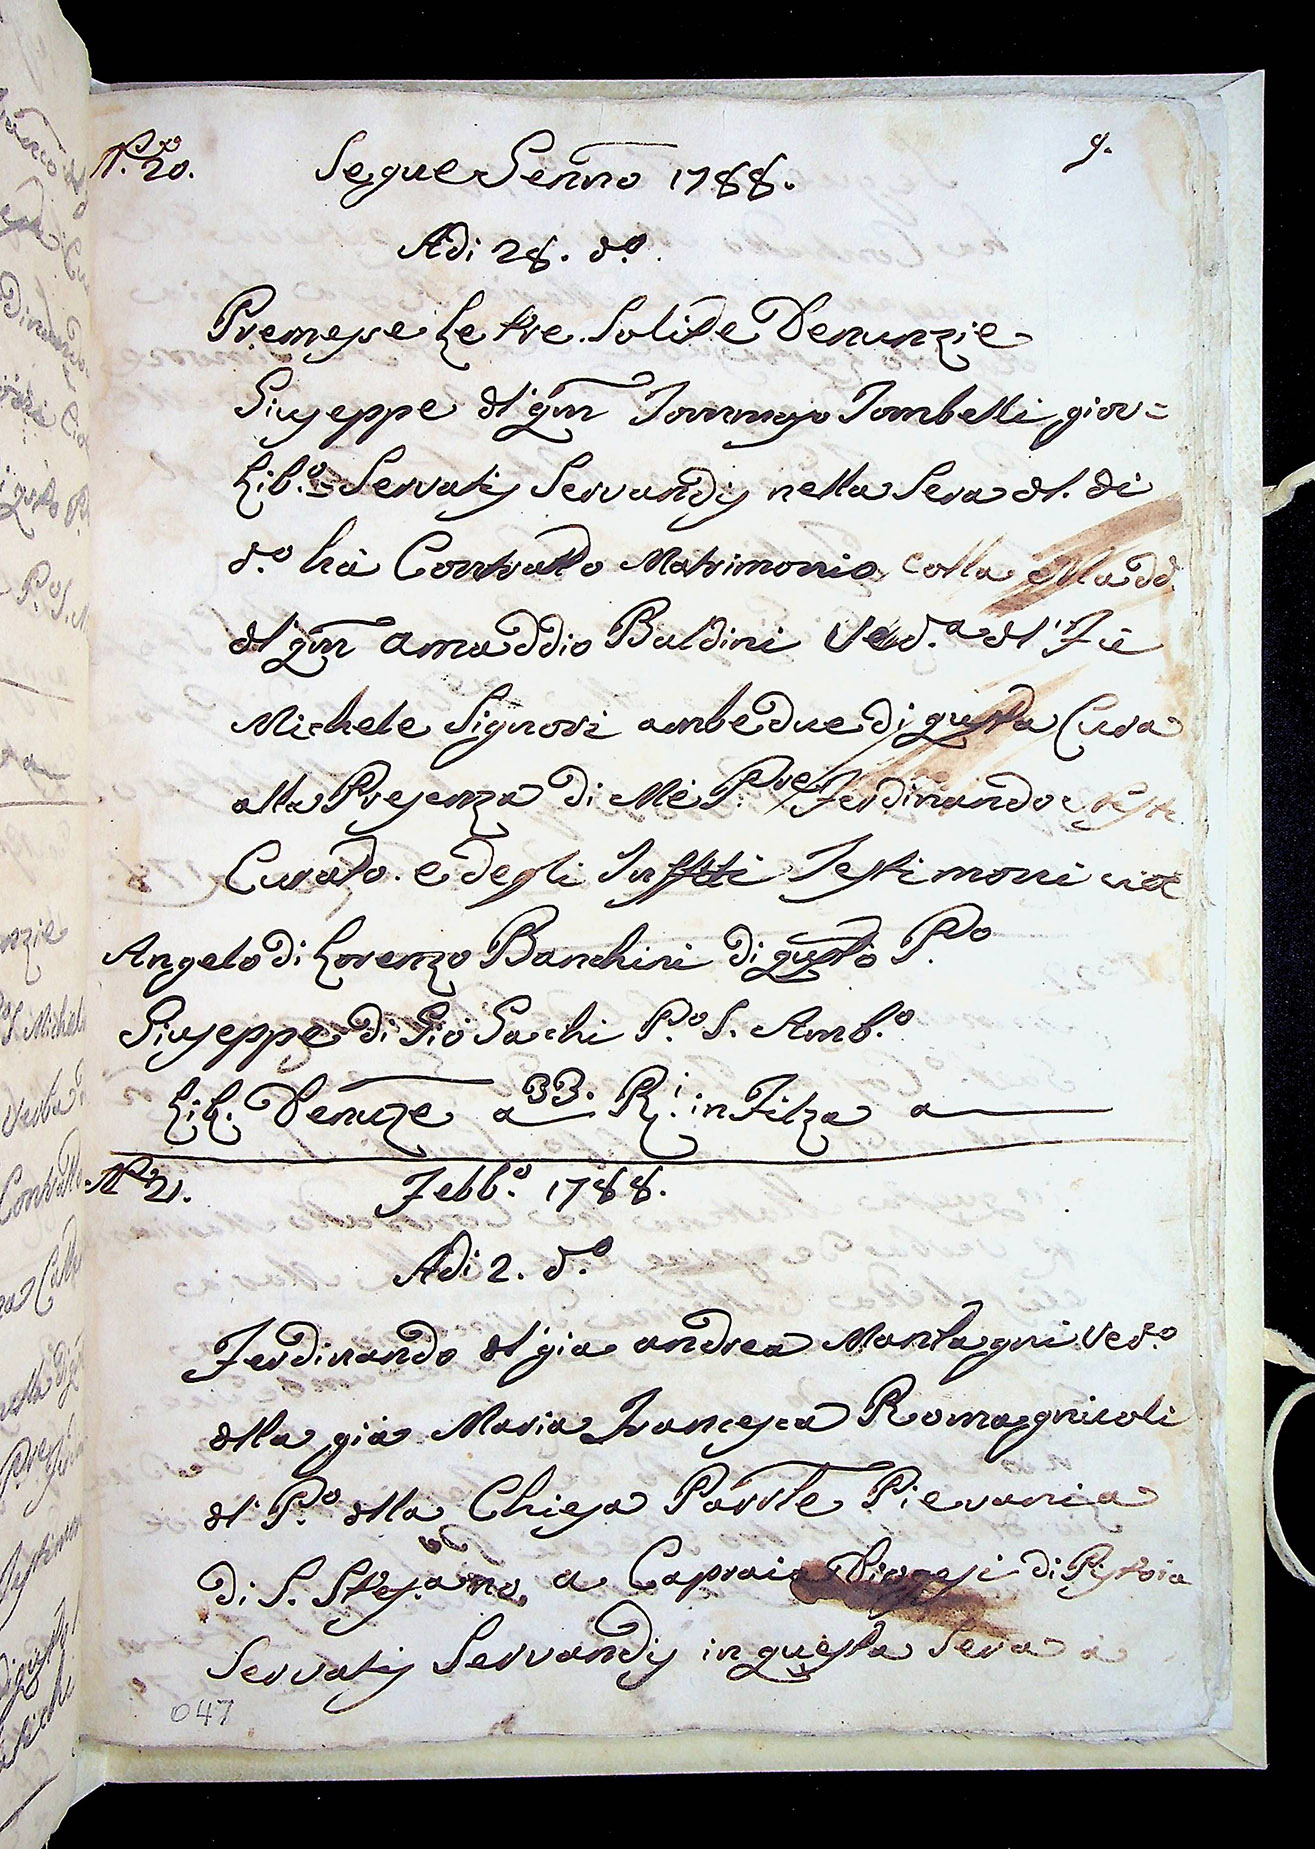 N.ro 20. Segue Genno 1788. 9.
Adi 28. d.o
Premesse Le tre Solite Denunzie
Giuseppe dl' qm Tommaso Tombelli giov=
Lib.o = Servatis Servandis nella Sera dl. di
d.o hà Contratto Matrimonio colla Madd.
dl' qm Amaddio Baldini Ved.a dl' Fù
Michele Signori ambedue di questa Cura
alla Presenza di Me P.re Ferdinando
Curato. e degli Infftti Testimoni cioè
Angelo di Lorenzo Banchini di questo P.o
Giuseppe di Gio Sachi P.o S. Amb.o
Lib. Denuze a 33. R.i in Filza a
N.o 21. Febb.o 1788.
Adi 2. d.o
Ferdinando dl già Andrea Mantagni Ved.o
dlla già Maria Francesca Romagnuoli
dl' P.o dlla Chiesa Parrle Pievania
di S. Stefano a Capraia Diogesi di Pistoia
Servatis Servandis in questa Sera à
047